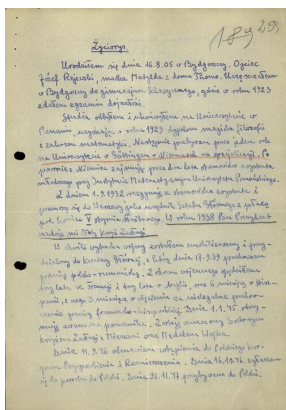 189 293
Życiorys.
Urodziłem się dnia 16.8.05 w Bydgoszczy. Ojciec
Józef Rejewski, matka Matylda z domu Thoms. Uczęszczałem
w Bydgoszczy do gimnazjum klasycznego, gdzie w roku 1923
zdałem egzamin dojrzałości.
Studia odbyłem i ukończyłem na Uniwersytecie w
Poznaniu, uzyskując w roku 1929 dyplom magistra filozofii
z zakresu matematyki. Następnie przebywam przez jeden rok
na Uniwersytecie w Göttingen w Niemczech na specjalizacji. Po
powrocie z Niemiec zajmuję przez dwa lata stanowisko asystenta
młodszego przy Instytucie Matematycznym Uniwersytetu Poznańskiego.
Z dniem 1.9.1932 rezygnuję ze stanowiska asystenta i
przenoszę się do Warszawy jako urzędnik Sztabu Głównego z płacą
pod koniec V stopnia służbowego. W roku 1938 Pan Prezydent
nadaje mi Złoty Krzyż Zasługi.
Z chwilą wybuchu wojny zostałem zmobilizowany i przy-
dzielony do kwatery Głównej, z którą dnia 17.9.39 przekraczam
granicę polsko-rumuńską. Z okresu wojennego spędziłem
trzy lata we Francji i trzy lata w Anglii, oraz 6 miesięcy w Hisz-
panii, z czego 3 miesiące w więzieniu za nielegalne przekro-
czenie granicy francusko-hiszpańskiej. Dnia 1.1.45 otrzy-
muję awans na porucznika. Zostaję odznaczony Srebrnym
Krzyżem Zasługi z Mieczami oraz Medalem Wojska.
Dnia 11.9.46 odmawiam wstąpienia do Polskiego Kor-
pusu Przysposobienia i Rozmieszczenia. Dnia 16.10.46 zgłaszam
się do powrotu do Polski. Dnia 21.11.46 przybywam do Polski.